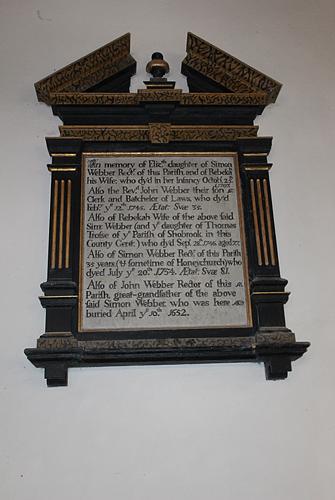 In memory of Eliz: daughter of Simon
Webber Rectr. of this Parish, and of Rebekah
his Wife; who dy'd in her Infancy Octob. 23d.
Also the Revd. John Webber their son
Clerk and Batchelor of Laws, who dy'd
Feb. ye. 12th. 1745. Ætat: Suæ 32.
Also of Rebekah Wife of the above said
Simn Webber (and ye daughter of Thomas
Trosse of ye Parish of Shobrook in this
County Gent:) who dy'd Sepl. 28th. 1746. aged 77.
Also of Simon Webber Rectr. of this Parish
35 years (& sometime of Honeychurch) who
dyed July ye 20th. 1754. Ætat: Suæ 81.
Also of John Webber Rector of this
Parish, great-grandfather of the above
said Simon Webber who was here
buried April ye 10th. 1652.